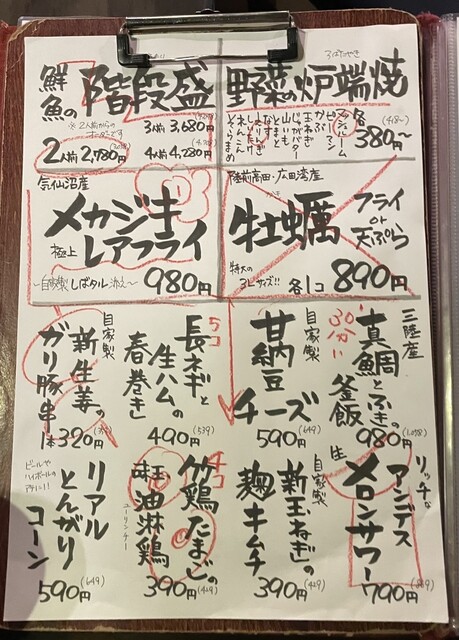 鮮魚の階段盛
※2人前からのオーダーです
2人前 2,780円
3人前 3,680円
4人前 4,280円
ろばたやき
野菜の炉端焼
各380円〜
(418〜)
マッシュルーム
ピーマン
かぶ
玉ねぎ
じゃがバター
山いも
なす
とまと
れんこん
そらまめ
気仙沼産
メカジキ
極上レアフライ
〜自家製しばタル添え〜
980円
陸前高田・広田湾産
牡蠣
フライ
or
天ぷら
特大の
3Lサイズ!!
各1コ890円
三陸産
真鯛とふきの
釜飯
30分
980円
自家製
甘納豆
チーズ
590円(649)
長ネギと
生ハムの
春巻き
5コ
490円(539)
自家製
新生姜の
ガリ豚串
1本320円
リッチな
アンデス
生メロンサワー
790円
自家製
新玉ねぎの
麹キムチ
390円(429)
竹鶏たまごの
油淋鶏
ユーリンチー
4コ
390円(429)
リアル
とんがり
コーン
ビールや
ハイボールの
アテに!!
590円(649)